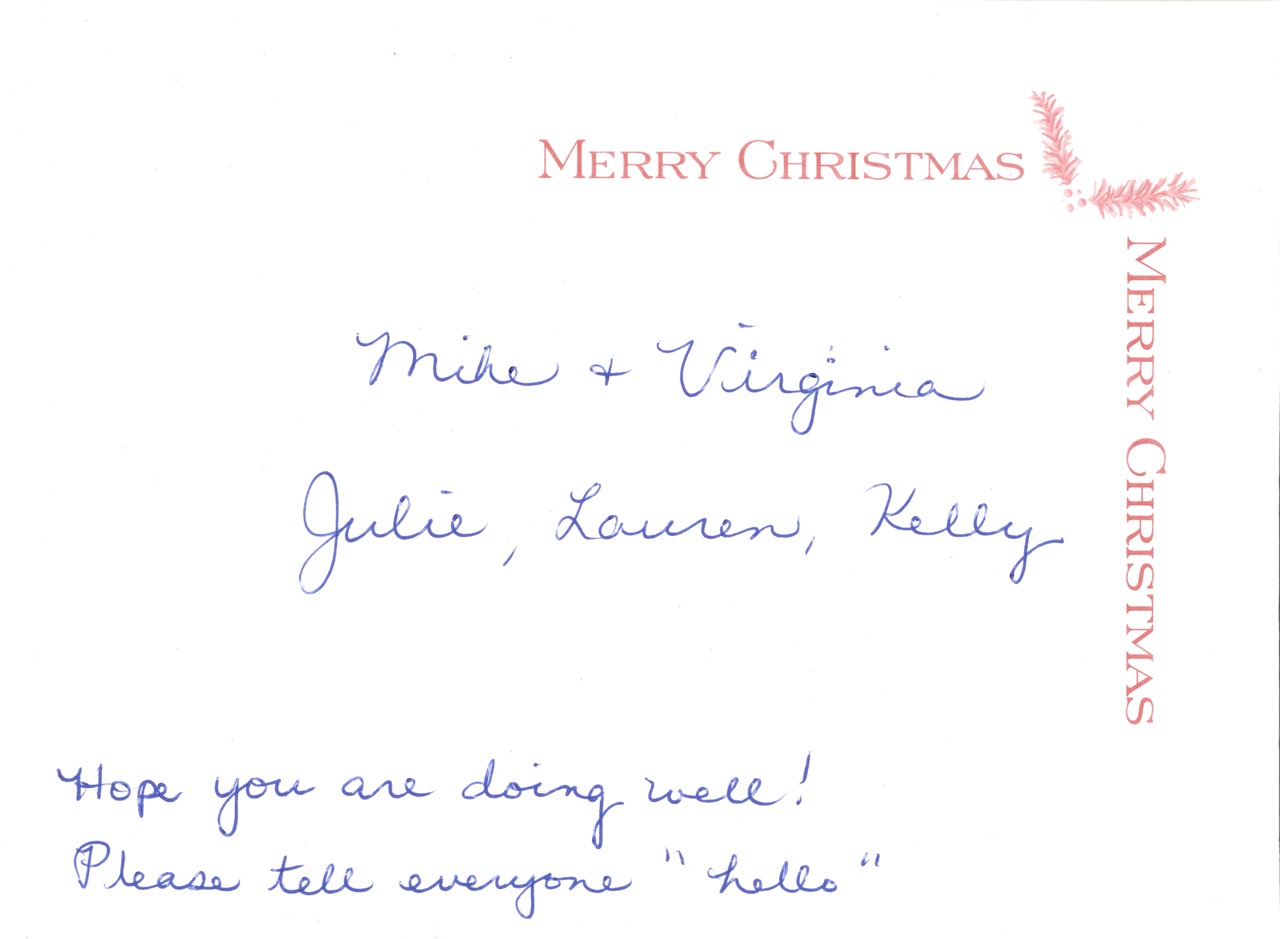 MERRY CHRISTMAS
MERRY CHRISTMAS
Mike + Virginia
Julie, Lauren, Kelly
Hope you are doing well!
Please tell everyone "hello"